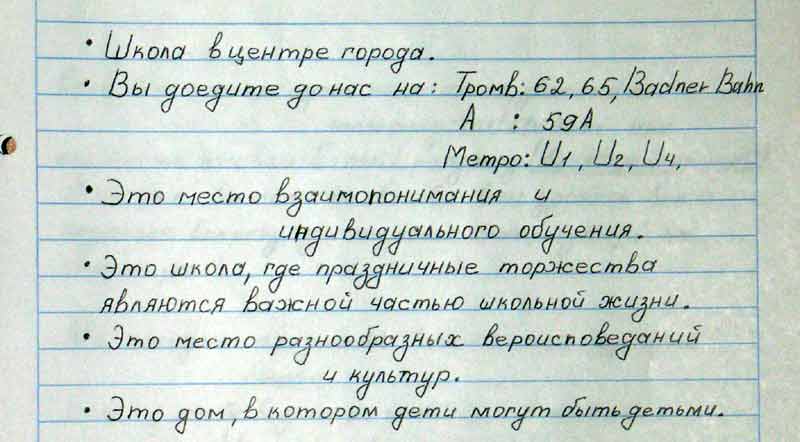 • Школа в центре города.
• Вы доедите до нас на: Тромв: 62, 65, Badner Bahn
А : 59А
Метро: U1, U2, U4,
• Это место взаимопонимания и
индивидуального обучения.
• Это школа, где праздничные торжества
являются важной частью школьной жизни.
• Это место разнообразных вероисповеданий
и культур.
• Это дом, в котором дети могут быть детьми.